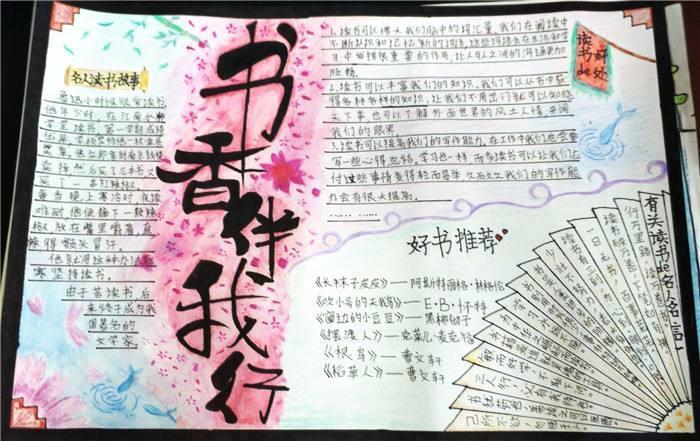 名人读书故事
鲁迅小时候很爱读书
他年少时，在江南水师
学堂读书，第一学期成绩
优异，学校奖给他一枚金质
奖章，他立即拿到南京鼓楼
卖掉，然后买了几本书，又
买了一串红辣椒。
每当晚上寒冷时，夜读
难耐，他便摘下一颗辣
椒，放在嘴里嚼着，直
辣得额头冒汗。
他就用这种办法驱
寒坚持读书。
由于苦读书，后
来终于成为我
国著名的
文学家
书香伴我行
读书de好处
1、读书可以增大我们脑中的词汇量，我们在阅读中
不断认识和记忆新的词语，这些词语在生活和学
习中发挥很重要的作用，让人与人之间的沟通更加
顺畅。
2、读书可以丰富我们的知识，我们可以从书中获
得各种各样的知识，让我们不用出门就可以知晓
天下事，也可以了解外面世界的风土人情，开阔
我们的眼界。
3、读书可以提高我们的写作能力，在工作中我们总需要
写一些心得总结，学习也一样，而多读书可以让我们应
付这些事情变得轻而易举，久而久之我们的写作能
力会有很大提高。
…… ……
好书推荐
《长袜子皮皮》——阿斯特丽德·林格伦
《吹小号的天鹅》——E·B·怀特
《窗边的小豆豆》——黑柳彻子
《摆渡人》——克莱儿·麦克福
《根鸟》——曹文轩
《稻草人》——曹文轩
有关读书de名言
行万里路，读万卷书。
读书破万卷，下笔如有神。
一日无书，百事荒芜。
书籍是人类进步的阶梯。
敏而好学，不耻下问。
三人行，必有我师也。
书犹药也，善读之可以医愚。
己所不欲，勿施于人。